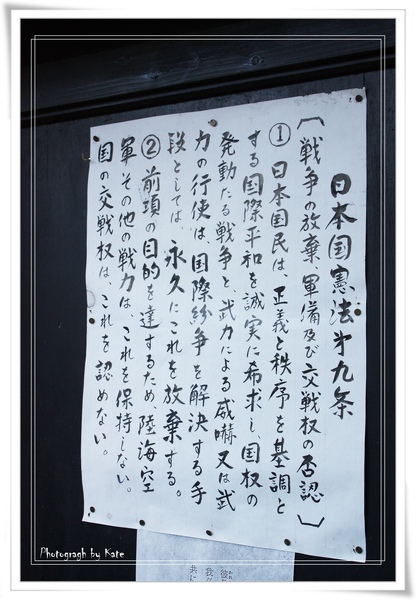 日本国憲法第九条
〔戦争の放棄、軍備及び交戦权の否認〕
①日本国民は、正義と秩序を基調と
する国際平和を誠実に希求し、国权の
発動たる戦争と、武力による威嚇又は武
力の行使は、国際紛争を解決する手
段としては、永久にこれを放棄する。
②前項の目的を達するため、陸海空
軍その他の戦力は、これを保持しない。
国の交戦权は、これを認めない。
Photograph by Kate